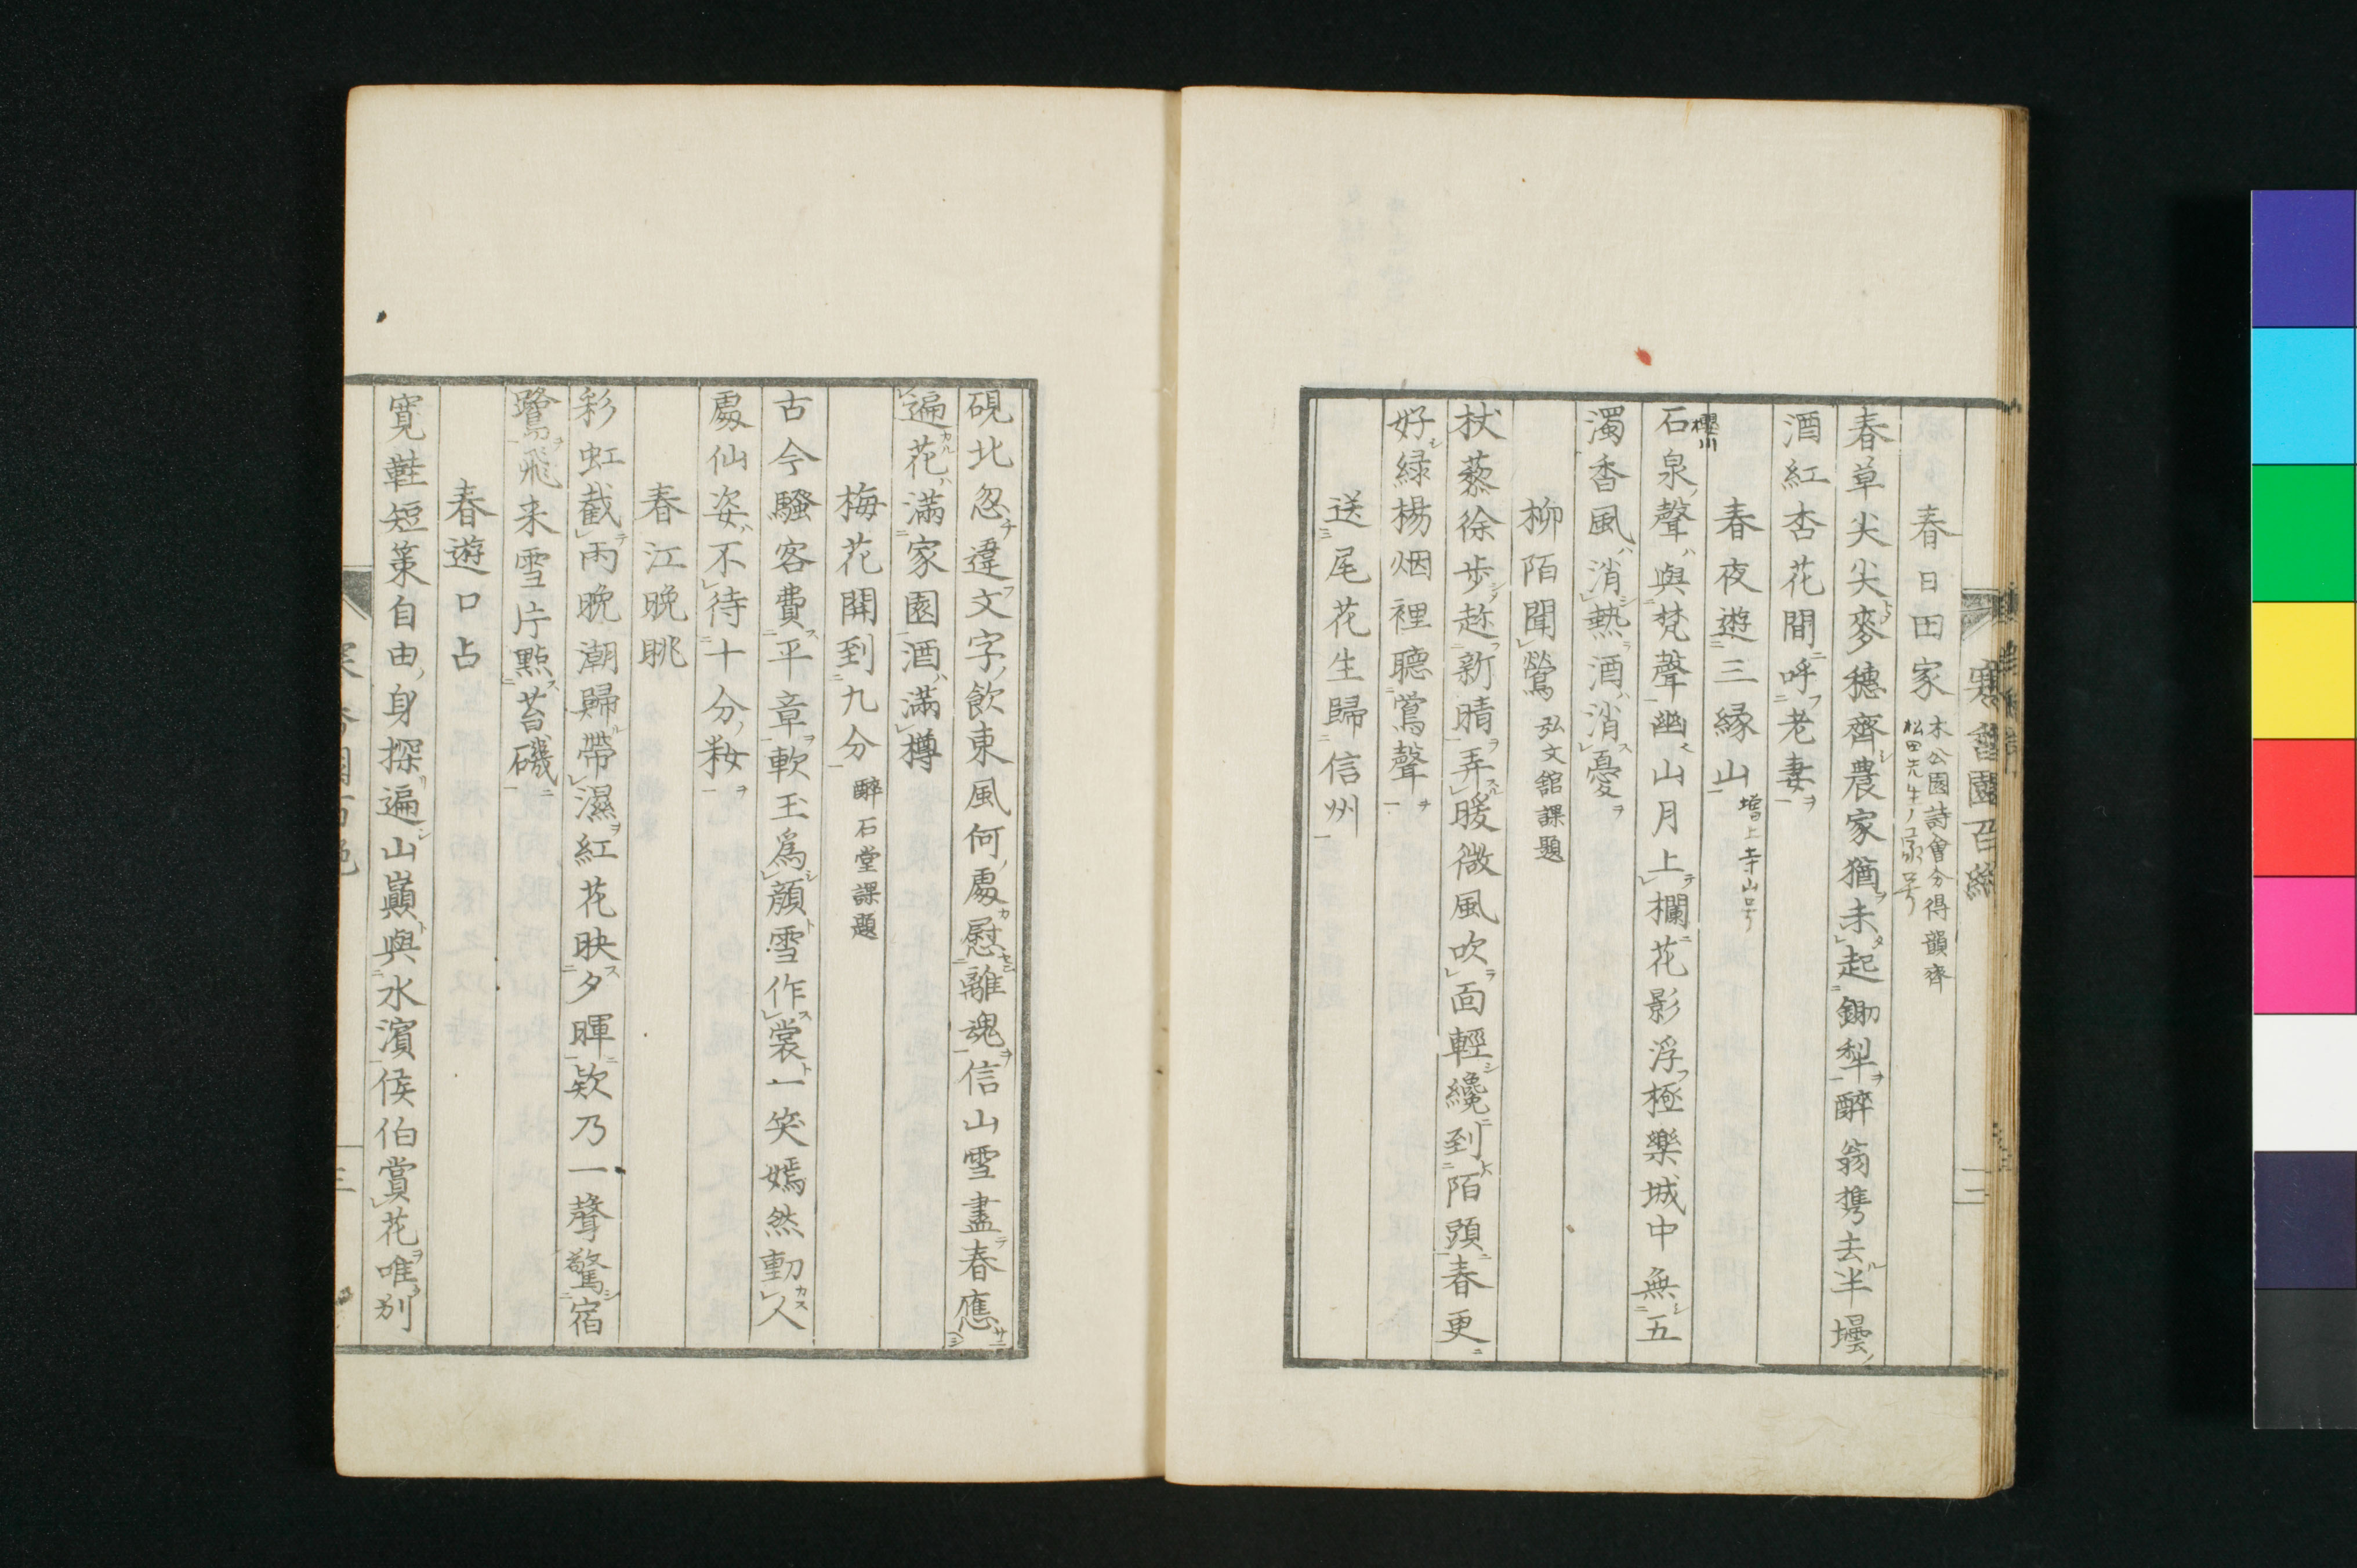 春日田家 木公園詩會分得韻齊
松田先生ノ家号
春草尖尖麥穗齊農家猶未起鋤犁醉翁携去半壜
酒紅杏花間呼老妻
春夜遊三縁山 增上寺山号
櫻川
石泉聲與梵聲幽山月上欄花影浮極樂城中無五
濁香風消熱酒消憂
柳陌聞鶯 弘文舘課題
杖藜徐歩趂新晴弄暖微風吹面輕纔到陌頭春更
好緑楊烟裡聽鶯聲
送尾花生歸信州
硯北忽違文字飲東風何處慰離魂信山雪盡春應
遍花滿家園酒滿樽
梅花開到九分 醉石堂課題
古今騷客費平章軟玉爲顔雪作裳一笑嫣然動人
處仙姿不待十分粧
春江晩眺
彩虹截雨晩潮歸帶濕紅花映夕暉欵乃一聲驚宿
鷺飛来雪片點苔磯
春遊口占
寛鞋短策自由身探遍山巓與水濱侯伯賞花唯別
三